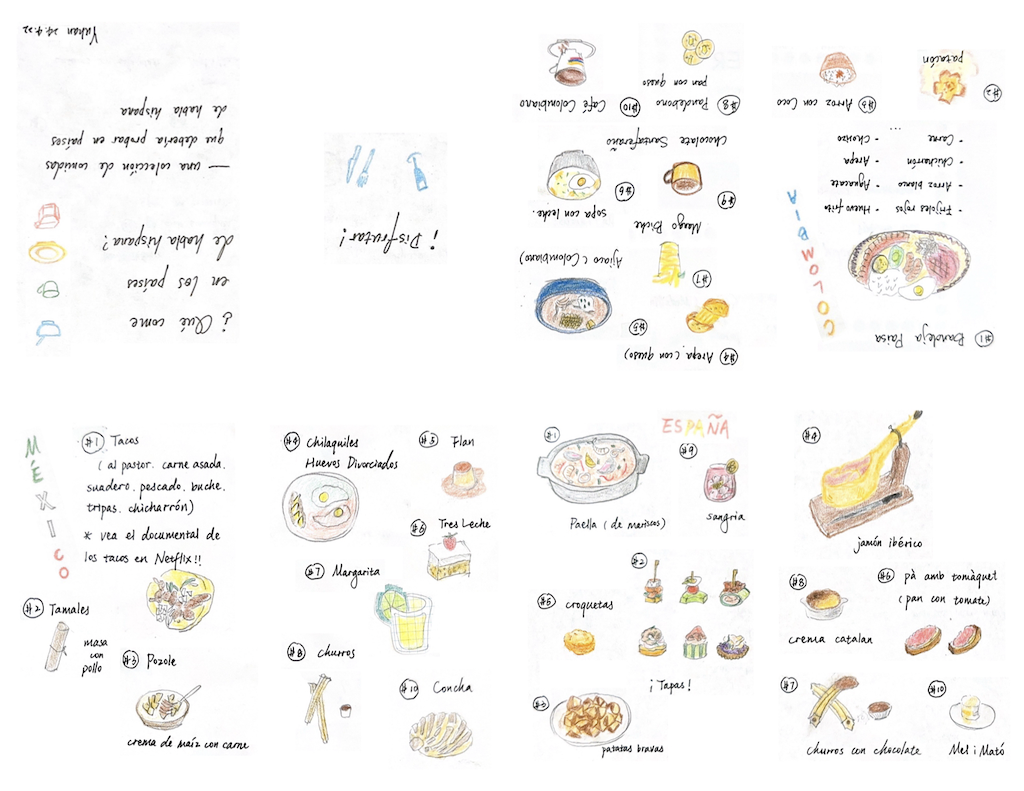 ¿ Qué come
en los países
de habla hispana?
— una colección de comidas
que debería probar en países
de habla hispana
Yuhan 24.4.22
¡ Disfrutar!
COLOMBIA
#1 Bandeja Paisa
Frijoles rojos - Huevo frito
Arroz blanco - Aguacate
- Chicharrón - Arepa
- Carne - Chorizo
...
#2
patacón
#3 Arroz con Coco
#4 Arepa (con queso)
#5
Ajiaco (Colombiano)
#6
sopa con leche.
#7
Mango Biche
#8 Pandebono
pan con queso
#9
Chocolate Santafereño
#10 Café Colombiano
MÉXICO
#1 Tacos
(al pastor. carne asada.
suadero. pescado. buche.
tripas. chicharrón)
* vea el documental de
los tacos en Netflix!!
#2 Tamales
masa
con
pollo
#3 Pozole
crema de maíz con carne
#4 Chilaquiles
Huevos Divorciados
#5 Flan
#6 Tres Leche
#7 Margarita
#8 churros
#10 Concha
ESPAÑA
#1
Paella (de mariscos)
#9
sangria
#2
¡Tapas!
#5 croquetas
#3
patatas bravas
#4
jamón ibérico
#8
crema catalan
#6 pà amb tomàquet
(pan con tomate)
#7
churros con chocolate
#10
Mel i Mató